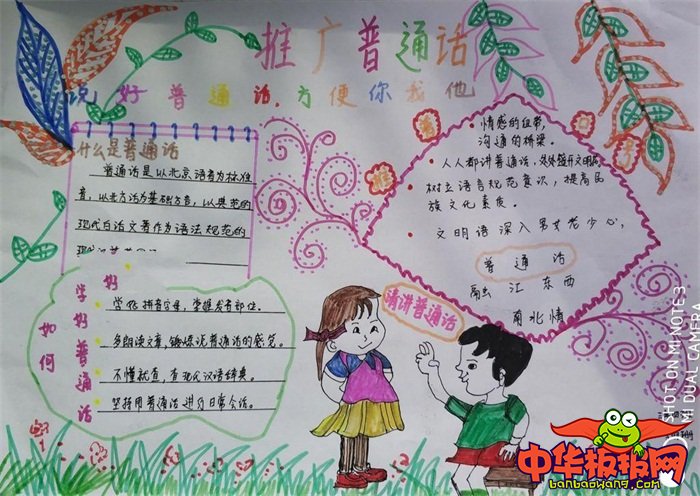 推广普通话
说好普通话，方便你我他
什么是普通话
普通话是以北京语音为标准
音，以北方话为基础方言，以典范的
现代白话文著作为语法规范的
如何学好普通话
多朗读文章，锻炼说普通话的感觉。
不懂就查，查现代汉语辞典。
坚持用普通话进行日常会话。
情感的纽带，
沟通的桥梁。
人人都讲普通话，处处盛开文明花
树立语言规范意识，提高民
族文化素质。
文明语深入男女老少心，
普通话
融江东西
南北情
请讲普通话
SHOT ON MI NOTE 3
MI DUAL CAMERA
中华板报网
banbaowang.com